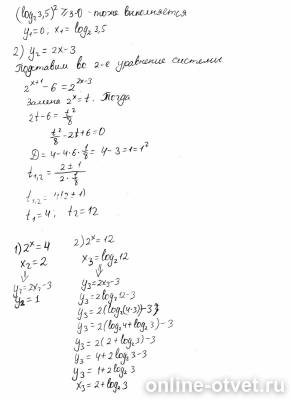 (log₂3,5)² ≥ 3·0 - тоже выполняется
y₁=0, x₁ = log₂3,5
2) y₂ = 2x-3
Подставим во 2-е уравнение системы
2^(x+1) - 6 = 2^(2x-3)
Замена 2^x = t. Тогда
2t-6 = t²/8
t²/8 - 2t + 6 = 0
D = 4-4·6·1/8 = 4-3 = 1 = 1²
t₁,₂ = (2±1)/(2·1/8)
t₁,₂ = 4(2±1)
t₁ = 4, t₂ = 12
1) 2^x = 4
x₂ = 2
⇓
y₂ = 2x₂-3
y₂ = 1
2) 2^x = 12
x₃ = log₂12
⇓
y₃ = 2x₃-3
y₃ = 2log₂12-3
y₃ = 2(log₂(4·3))-3
y₃ = 2(log₂4+log₂3)-3
y₃ = 2(2+log₂3)-3
y₃ = 4+2log₂3-3
y₃ = 1+2log₂3
x₃ = 2+log₂3
online-otvet.ru